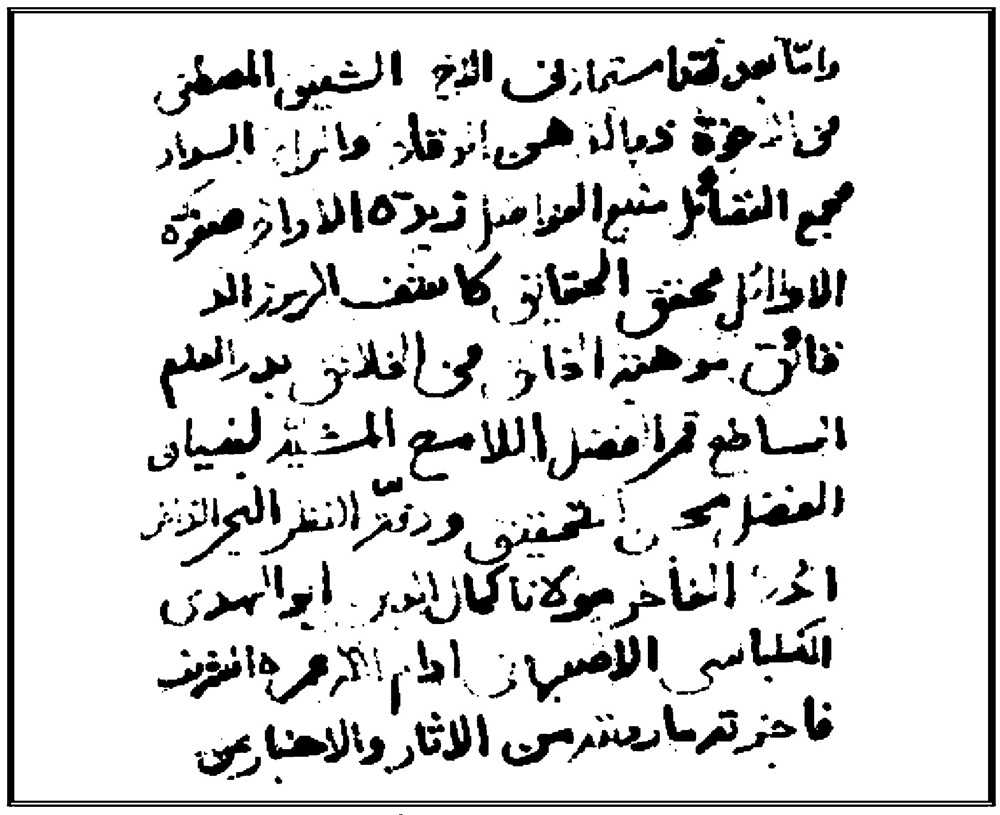 وامّا بعد فقد استجازني الاخ الشفيق المصطفى
من الاخوة ذو الهمن الوقاد والراي السداد
مجمع الفضائل منبع الفواضل فريدة الاوان صفوة
الاوائل محقق الحقائق كاشف الرموز الد
قائق بموهبة الخالق من الخلائق بدر العلم
الساطع قمر الفضل اللامع المشيّد لمباني
الفضل بحسن التحقيق ودقّة النظر البحر الزاخر
الفاخر مولانا كمال الدين ابو الهدى
الكلباسي الاصبهاني ادام الله عمره الشريف
فاجزته ما رويته من الاثار والاخبار عن